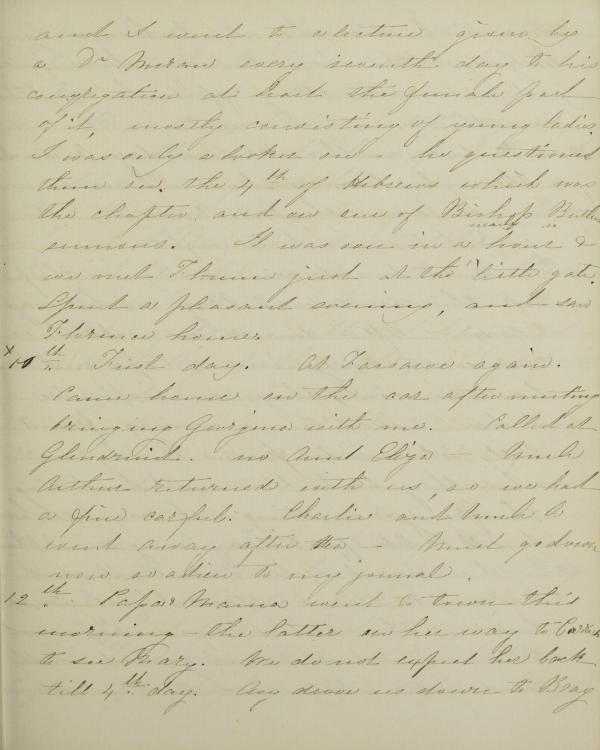 and I went to a lecture given by
a Dr Moran every seventh day to his
congregation at least the female part
of it, mostly consisting of young ladies.
I was only a looker on - he questioned
them on the 4th of Hebrews which was
the chapter and on one of Bishop
sermons. It was over in a hour &
we met Florence just at the little gate.
Spent a pleasant evening, and saw
Florence home.
x 10th First day. At again.
Came home on the car after meeting
bringing Georgina with me. Called at
Glendruid. no Aunt Eliza - Uncle
Arthur returned with us, so we had
a fine carful. Charlie and Uncle A
went away after tea - Must go down
now so adieu to my journal.
12th. Papa & Mama went to town this
morning - the latter on her way to
to see Mary. We do not expect her back
till 4th day. drove us down to Bray